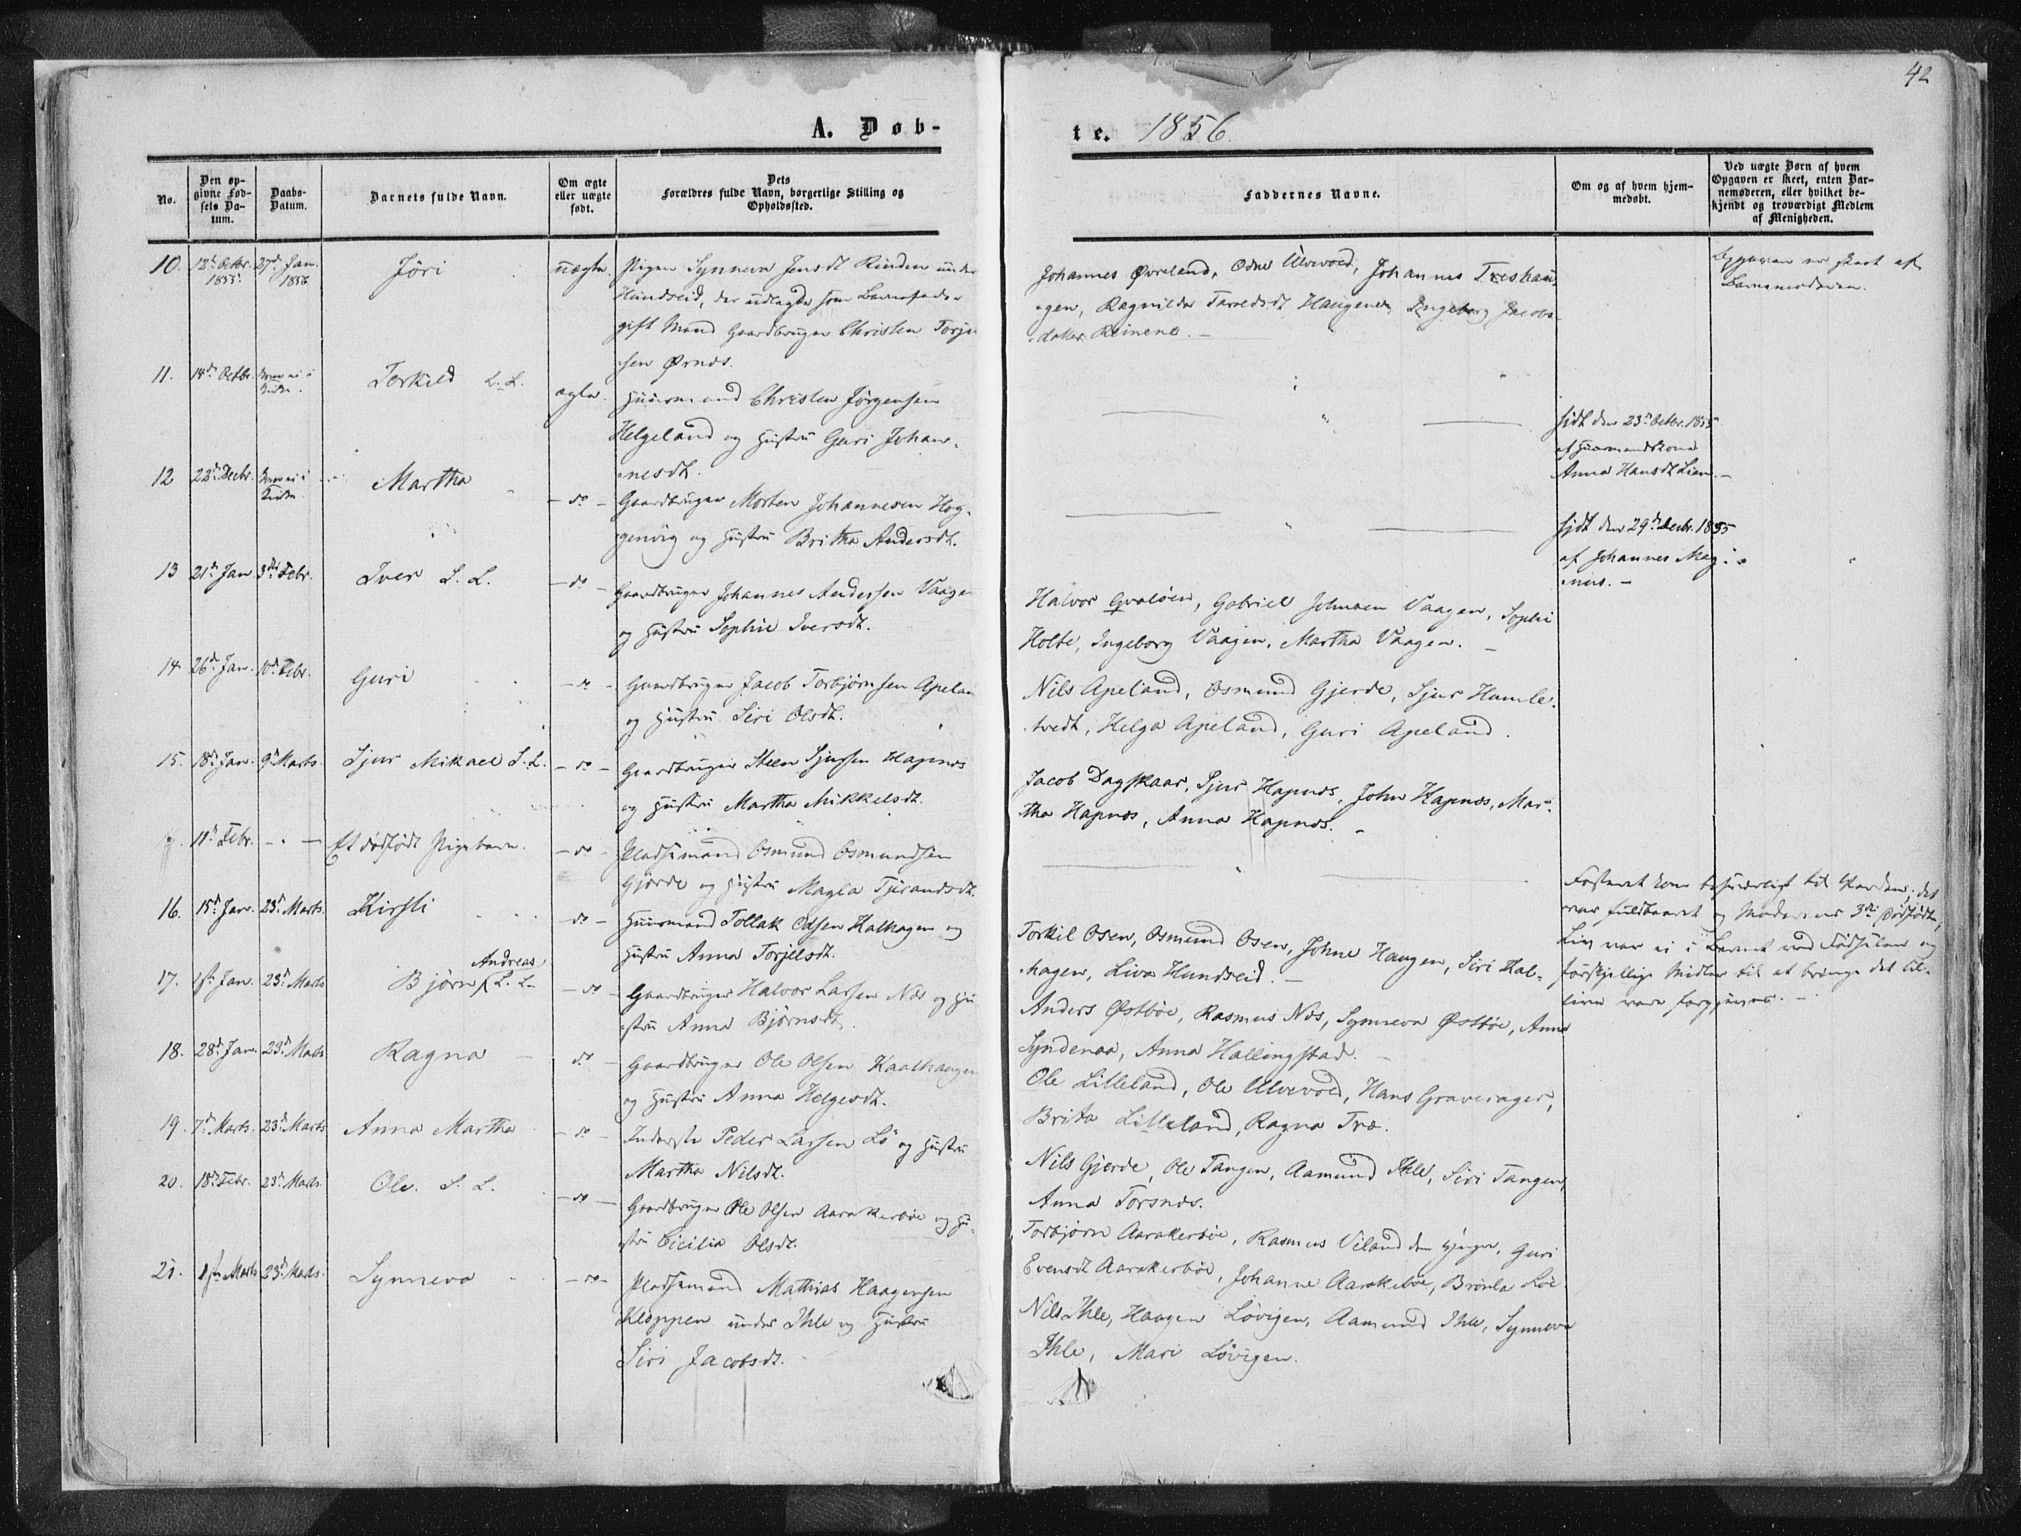 42
A. Døb-
te. 1856.
No.
Den op-
givne Fød-
sels Da-
tum.
Daabs-
Datum.
Barnets fulde Navn.
Om ægte
eller uægte
født.
Dets
Forældres fulde Navn, borgerlige Stilling og
Opholdssted.
Faddernes Navne.
Om og af hvem hjem-
medøbt.
Ved uægte Børn af hvem
Opgaven er skeet, enten Bar-
nemoderen, eller hvilket be-
kjendt og troværdigt Medlem
af Menigheden.
10. 12te Octbr. 1855. 27de Jan. 1856. Jøri uægte. Pigen Synneva Jensdt Rinden under
Hundseid, der udlagde som Barnefader
gift Mand Gaardbruger Christen Torje
sen Ørnes.
Johannes Øvreland, Odne Ulvevold, Johannes Treshau
gen, Ragnilda Taroldsdt Haugene, Ingeborg Jacobs
datter Reinene. –
Opgaven er skeet af
Barnemoderen.
11. 14de Octbr. Torkild L. L. ægte. Huusmand Christen Jørgensen
Helgeland og Hustru Guri Johan-
nesdt.
hjdt den 23de Octbr. 1855
af Huusmandskone
Anna Hansdt Lien –
12 22de Decbr. Martha – do – Gaardbruger Morten Johannesen Hog-
genvig og Hustru Britha Andersdt.
hjdt den 29de Decbr. 1855
af Johannes Mag-
nus. –
13 21de Jan 3die Febr. Iver L. L. – do – Gaardbruger Johannes Andersen Vaage
og Hustru Sophie Iversdt.
Halvor Qvaløen, Gabriel Johnsen Vaagen, Sophi
Holte, Ingeborg Vaagen, Martha Vaagen. –
14 26de Jan. 10de Febr. Guri – do – Gaardbruger Jacob Torbjørnsen Apelan
og Hustru Siri Olsdt.
Nils Apeland, Osmund Gjerde, Sjur Hamle
tvedt, Helga Apeland, Guri Apeland.
15. 18de Jan. 9de Marts. Sjur Mikael L. L. – do – Gaardbruger Steen Sjursen Hapnes
og Hustru Martha Mikkelsdt.
Jacob Dagskaar, Sjur Hapnes, John Hapnes, Mar-
tha Hapnes, Anna Hapnes. –
11te Febr. – " – Et dødfødt Pigebarn. – do – Pladsemand Osmund Osmundsen
Gjerde og Hustru Magla Tjerandsdt.
Fosteret kom besværligt til Verden; det
var fuldbaaret og Moderens 3die dødfødte,
Liv var ei i Barnet ved Fødselen og
forskjellige Midler til at bringe det til-
live vare forgjæves. –
16. 15de Jan. 23de Marts. Kirsti – do – Huusmand Tollak Odsen Halhagen og
Hustru Anna Torjelsdt.
Torkil Osen, Osmund Osen, Johne Haugen, Siri Hal-
hagen, Liva Hundseid. –
17. 1ste Jan. 23de Marts Bjørn Andreas L. L. – do – Gaardbruger Halvor Larsen Nes og Hu-
stru Anna Bjørnsdt.
Anders Østbøe, Rasmus Nes, Synneva Østbøe, Anna
Syndenaa, Anna Hallingstad. –
18. 28de Jan. 23de Marts Ragna – do – Gaardbruger Ole Olsen Kaalhaugen
og Hustru Anna Helgesdt.
Ole Lilleland, Ole Ulvevold, Hans Graverager,
Brita Lilleland, Ragna Træ.
19. 7de Marts. 23de Marts Anna Martha – do – Inderste Peder Larsen Lø og Hustru
Martha Nilsdt.
Nils Gjerde, Ole Tangen, Aamund Ihle, Siri Tangen,
Anna Torsnes.
20. 18de Febr. 23de Marts. Ole L. L. – do – Gaardbruger Ole Olsen Aarakerbøe og Hu-
stru Cicilia Olsdt.
Torbjørn Aarakerbøe, Rasmus Viland den yngre, Guri
Evensdt Aarakerbøe, Johanne Aarakebøe, Brønla Løe
21. 1ste Marts 23de Marts. Synneva – do – Pladsemand Mathias Haagensen
Kloppen under Ihle og Hustru
Siri Jacobsdt.
Nils Ihle, Haagen Løvigen, Aamund Ihle, Synneva
Ihle, Mari Løvigen.